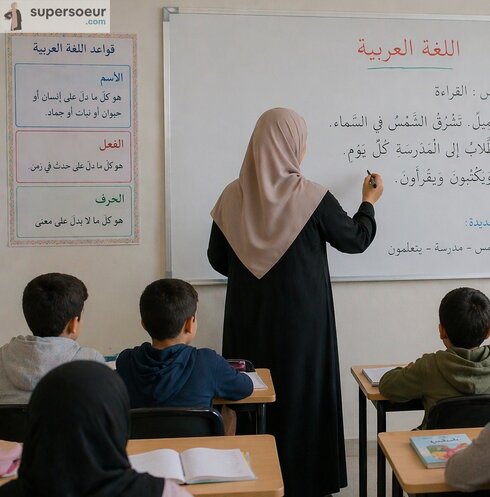 supersoeur
.com
قواعد اللغة العربية
الأسم
هو كلّ ما دلَ على إنسان أو
حيوان أو نبات أو جماد.
الفعل
هو كلّ ما دلَ على حدث في زمن
الحرف
هو كلّ ما لا يدلَ على معنى
اللغة العربية
: القراءة
تَشْرُقُ الشَّمْسُ في السَّماء.
إلى الْمَدْرَسَةِ كُلَّ يَوْمٍ.
وَيَكْتُبونَ وَيَقرأون.
- مدرسة - يتعلمون